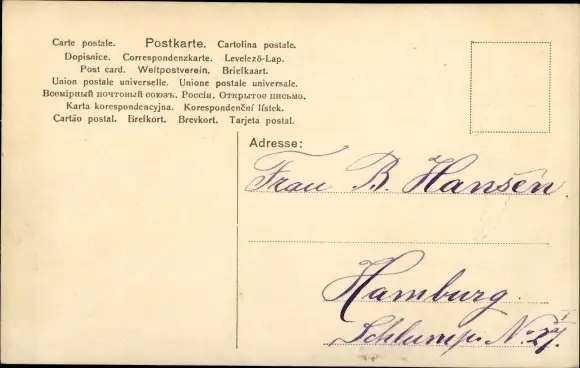 Carte postale. Postkarte. Cartolina postale.
Dopisnice. Correspondenzkarte. Levelező-Lap.
Post card. Weltpostverein. Briefkaart.
Union postale universelle. Unione postale universale.
Всемірный почтовый союзъ. Россія. Открытое письмо.
Karta korespondencyjna. Korespondenční lístek.
Cartão postal. Brefkort. Brevkort. Tarjeta postal.
Adresse:
Frau B. Hansen
Hamburg.
Schlump. No. 27 I